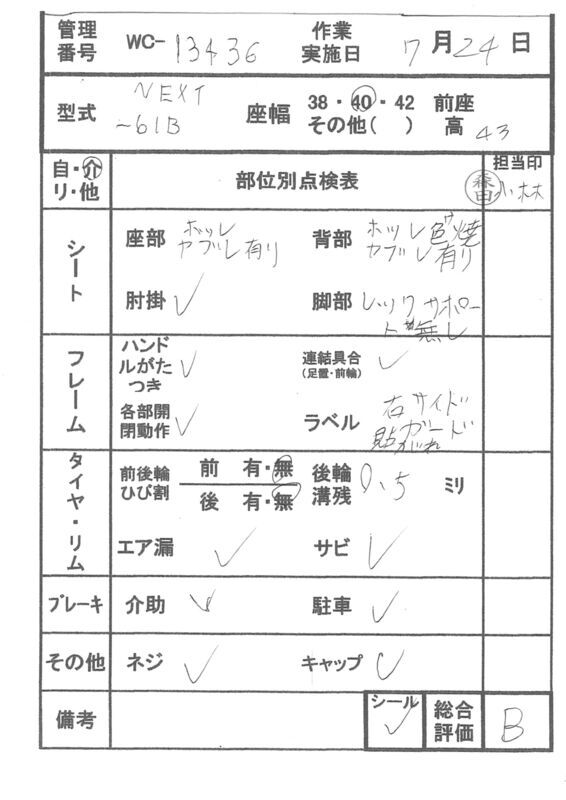 管理番号 WC- 13436 作業実施日 7月24日
型式 NEXT -61B 座幅 38・40・42 その他( ) 前座高 43
自・介 リ・他 部位別点検表 担当印 森田 小林
シート
座部 ホツレ カブレ有り 背部 ホツレ色ヤケ焼 カブレ有り
肘掛 ✓ 脚部 レッグサポート無し
フレーム
ハンドルがたつき ✓ 連結具合 (足置・前輪) ✓
各部開閉動作 ✓ ラベル 右サイドガード貼がれ
タイヤ・リム
前後輪ひび割 前 有・無 後輪溝残 0.5 ミリ
後 有・無
エア漏 ✓ サビ ✓
ブレーキ 介助 ✓ 駐車 ✓
その他 ネジ ✓ キャップ ✓
備考 シール ✓ 総合評価 B